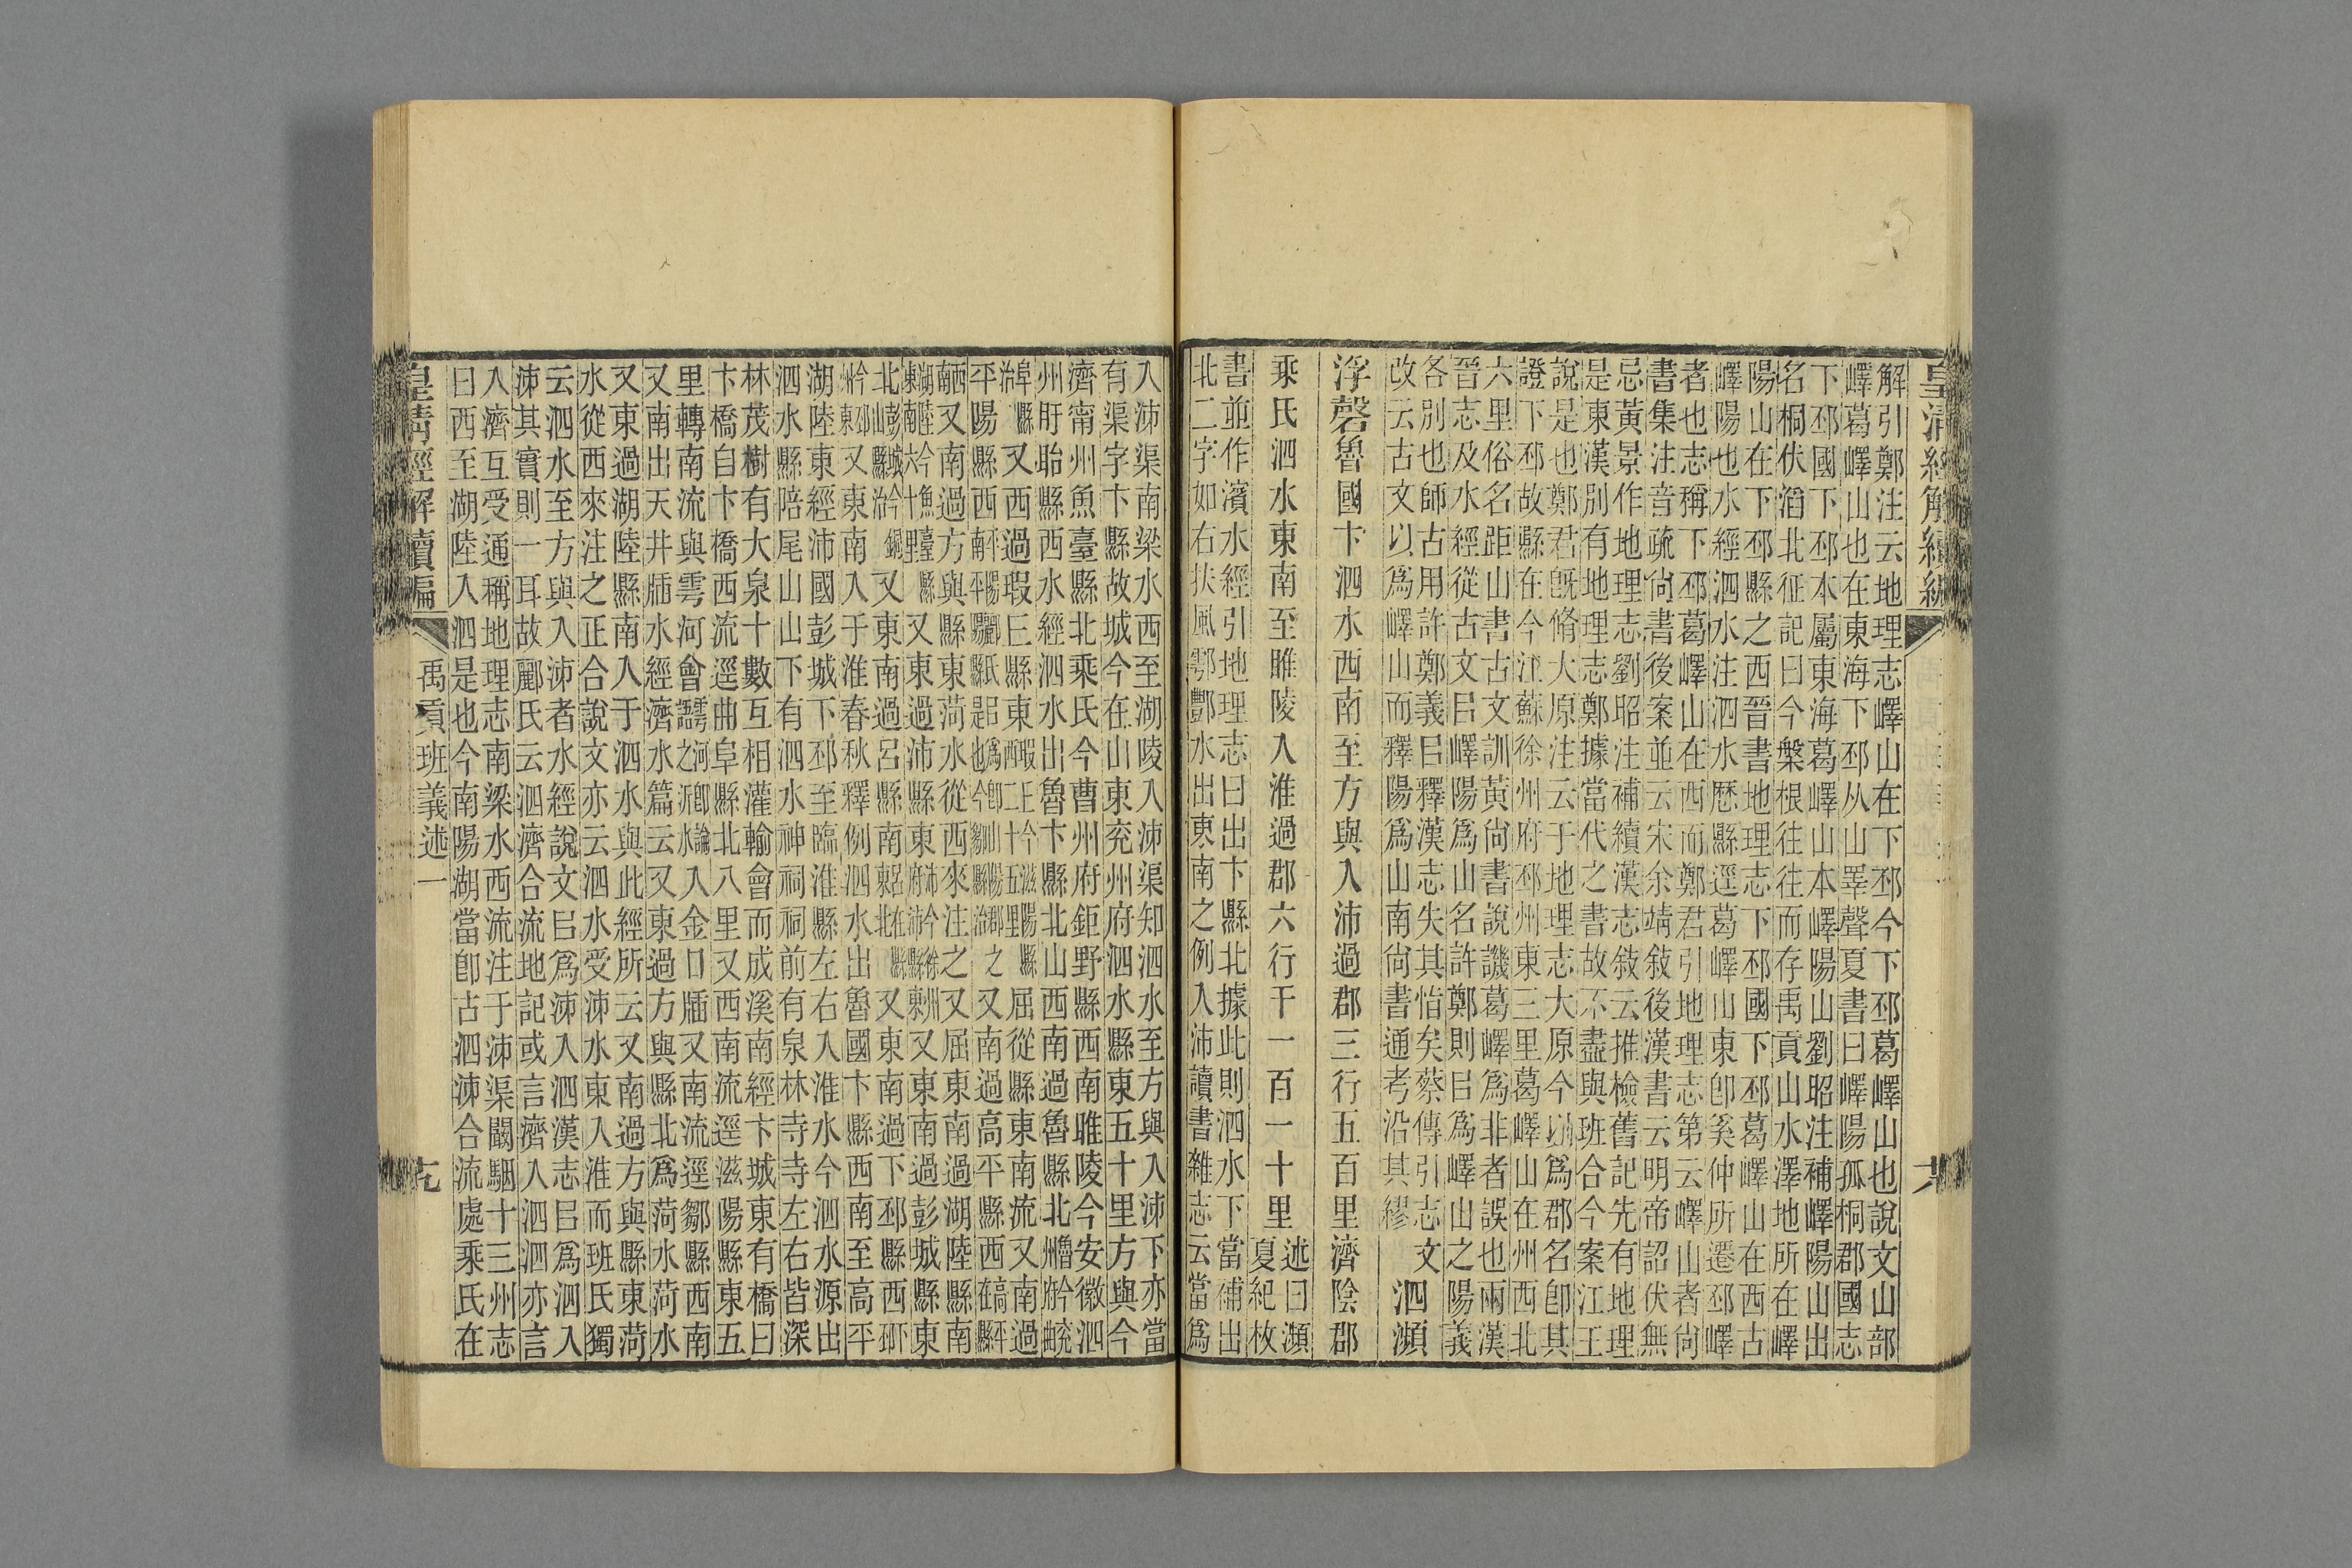 皇清經解續編
解引鄭注云地理志嶧山在下邳今下邳葛嶧山也說文山部
嶧葛嶧山也在東海下邳从山睪聲夏書曰嶧陽孤桐郡國志
下邳國下邳本屬東海葛嶧山本嶧陽山劉昭注補嶧陽山出
名桐伏滔北征記曰今槃根往往而存禹貢山水澤地所在嶧
陽山在下邳縣之西晉書地理志下邳國下邳葛嶧山在西古
嶧陽也水經泗水注泗水歷縣逕葛嶧山東卽奚仲所遷邳嶧
者也志稱下邳葛嶧山在西而鄭君引地理志第云嶧山者尙
書集注音疏尙書後案並云宋余靖敍後漢書云明帝詔伏無
忌黃景作地理志劉昭注補續漢志敍云推檢舊記先有地理
是東漢別有地理志鄭據當代之書故不盡與班合今案江王
說是也鄭君旣脩大原注云于地理志大原今以爲郡名卽其
證下邳故縣在今江蘇徐州府邳州東三里葛嶧山在州西北
六里俗名距山書古文訓黃尙書說譏葛嶧爲非者誤也兩漢
晉志及水經從古文㠯嶧陽爲山名許鄭則㠯爲嶧山之陽義
各別也師古用許鄭義㠯釋漢志失其恉矣蔡傳引志文
改云古文以爲嶧山而釋陽爲山南尙書通考沿其繆
泗瀕
浮磬魯國卞泗水西南至方與入沛過郡三行五百里濟陰郡
乘氏泗水東南至睢陵入淮過郡六行千一百一十里
述曰瀕
夏紀枚
書並作濱水經引地理志曰出卞縣北據此則泗水下當補出
北二字如右扶風鄠酆水出東南之例入沛讀書雜志云當爲
入泲渠南梁水西至湖陵入泲渠知泗水至方與入泲下亦當
有渠字卞縣故城今在山東兖州府泗水縣東五十里方與今
濟甯州魚臺縣北乘氏今曹州府鉅野縣西南睢陵今安徽泗
州盱眙縣西水經泗水出魯卞縣北山西南過魯縣北魯今兖州府曲
阜縣治又西過瑕丘縣東瑕丘今滋陽縣西二十五里屈從縣東南流又南過
平陽縣西南平陽卽氏邑爲今鄒縣治之又南過高平縣西高平在縣
西南又南過方與縣東菏水從西來注之又屈東南過湖陸縣南
湖陸今魚臺縣東南六十里又東過沛縣東沛今徐州府沛縣東又東南過彭城縣東
北彭城今銅山縣治又東南過呂縣南呂在縣東北又東南過下邳縣西下邳
今邳州東又東南入于淮春秋釋例泗水出魯國卞縣西南至高平
湖陸東經沛國彭城下邳至臨淮縣左右入淮水今泗水源出
泗水縣陪尾山山下有泗水神祠祠前有泉林寺寺左右皆深
林茂樹有大泉十數互相灌輸會而成溪南經卞城東有橋曰
卞橋自卞橋西流逕曲阜縣北八里又西南流逕滋陽縣東五
里轉南流與雩河會雩河卽論語之沂水入金口牐又南流逕鄒縣西南
又南出天井牐水經濟水篇云又東過方與縣北爲菏水菏水
又東過湖陸縣南入于泗水與此經所云又南過方與縣東菏
水從西來注之正合說文亦云泗水受泲水東入淮而班氏獨
云泗水至方與入泲者水經說文㠯爲泲入泗漢志㠯爲泗入
泲其實則一耳故酈氏云泗濟合流地記或言濟入泗泗亦言
入濟互受通稱地理志南梁水西流注于泲渠闞駰十三州志
曰西至湖陸入泗是也今南陽湖當卽古泗泲合流處乘氏在
皇清經解續編
禹貢班義述一